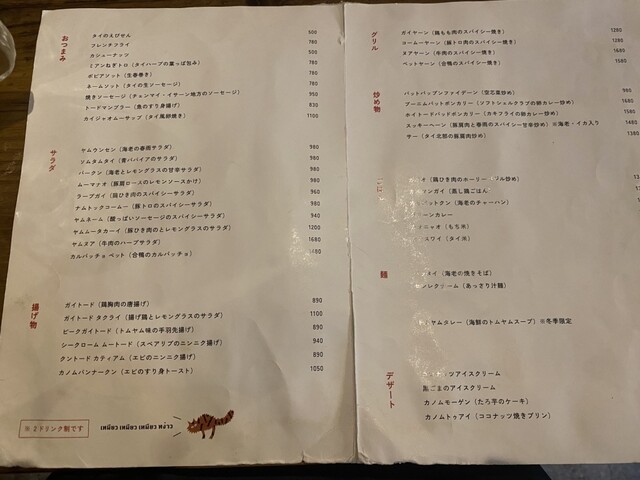 おつまみ
タイのえびせん 500
フレンチフライ 780
カシューナッツ 500
ミアンねぎトロ（タイハーブの葉っぱ包み） 780
ポピアソット（生春巻き） 780
ネームソット（タイの生ソーセージ） 780
焼きソーセージ（チェンマイ・イサーン地方のソーセージ） 950
トードマンプラー（魚のすり身揚げ） 830
カイジャオムーサップ（タイ風卵焼き） 1100
サラダ
ヤムウンセン（海老の春雨サラダ） 980
ソムタムタイ（青パパイアのサラダ） 980
パークン（海老とレモングラスの甘辛サラダ） 980
ムーマナオ（豚肩ロースのレモンソースかけ） 980
ラープガイ（鶏ひき肉のスパイシーサラダ） 980
ナムトックコームー（豚トロのスパイシーサラダ） 960
ヤムネーム（酸っぱいソーセージのスパイシーサラダ） 940
ヤムムータカーイ（豚ひき肉のとレモングラスのサラダ） 1200
ヤムヌア（牛肉のハーブサラダ） 1680
カルパッチョ ペット（合鴨のカルパッチョ）
揚げ物
ガイトード（鶏胸肉の唐揚げ） 890
ガイトード タクライ（揚げ鶏とレモングラスのサラダ） 1100
ピークガイトード（トムヤム味の手羽先揚げ） 890
シークローム ムートード（スペアリブのニンニク揚げ） 940
クントード カティアム（エビのニンニク揚げ） 890
カノムパンナークン（エビのすり身トースト） 1050
※２ドリンク制です
เหมียว เหมียว เหมียว หง่าว
グリル
ガイヤーン（鶏もも肉のスパイシー焼き） 1280
コームーヤーン（豚トロ肉のスパイシー焼き） 1280
ヌアヤーン（牛肉のスパイシー焼き） 1680
ペットヤーン（合鴨のスパイシー焼き） 1580
炒め物
パットパップンファイデーン（空芯菜炒め） 980
プーニムパットポンカリー（ソフトシェルクラブの卵カレー炒め） 1680
ホイトードパッドポンカリー（カキフライの卵カレー炒め） 1680
スッキーヘーン（豚肩肉と春雨のスパイシー甘辛炒め）※海老・イカ入り 1480
サー（タイ北部の豚肩肉炒め） 1380
（鶏ひき肉のホーリー リル炒め）
ンガイ（蒸し鶏ごはん）
ットクン（海老のチャーハン）
ーンカレー
ニャオ（もち米）
スワイ（タイ米）
麺
タイ（海老の焼きそば）
ンレクナーム（あっさり汁麺）
ヤムタレー（海鮮のトムヤムスープ）※冬季限定
デザート
ッツアイスクリーム
黒ごまのアイスクリーム
カノムモーゲン（たろ芋のケーキ）
カノムトゥアイ（ココナッツ焼きプリン）